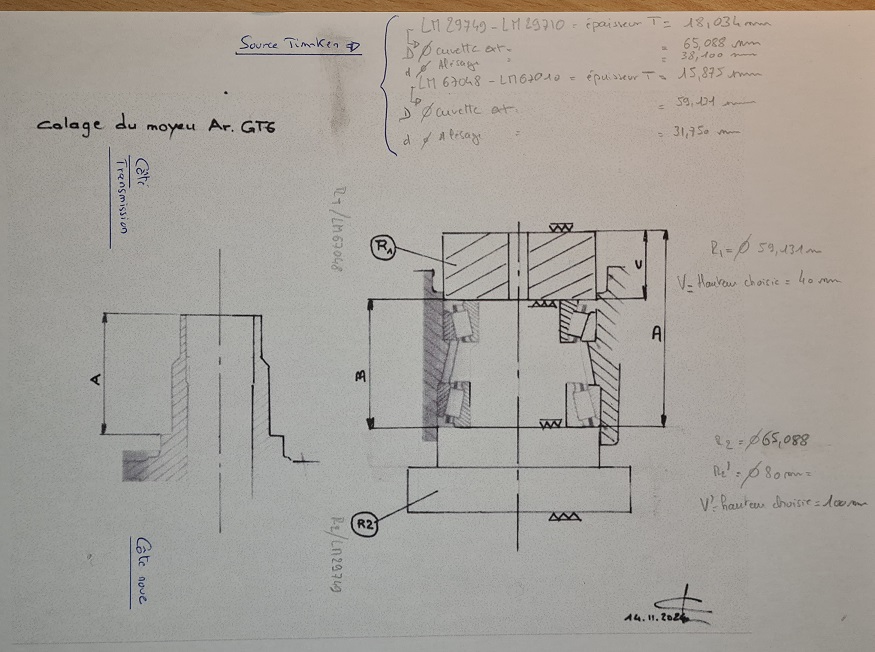 Source Timken
LM 29749 - LM 29710 = épaisseur T = 18,034 mm
D Ø cuvette ext. = 65,088 mm
d Ø Alésage " = 38,100 mm
LM 67048 - LM 67010 = épaisseur T = 15,875 mm
D Ø cuvette ext. = 59,131 mm
d Ø Alésage " = 31,750 mm
Calage du moyeu Ar. GT6
Côté
Transmission
R1/LM67048
R1
R1 = Ø 59,131 m
V = Hauteur choisie = 40 mm
V
A
B
A
R2 = Ø 65,088
R2' = Ø 80 mm =
V' = hauteur choisie = 100 mm
R2
R2/LM29749
Côté roue
14.11.2024